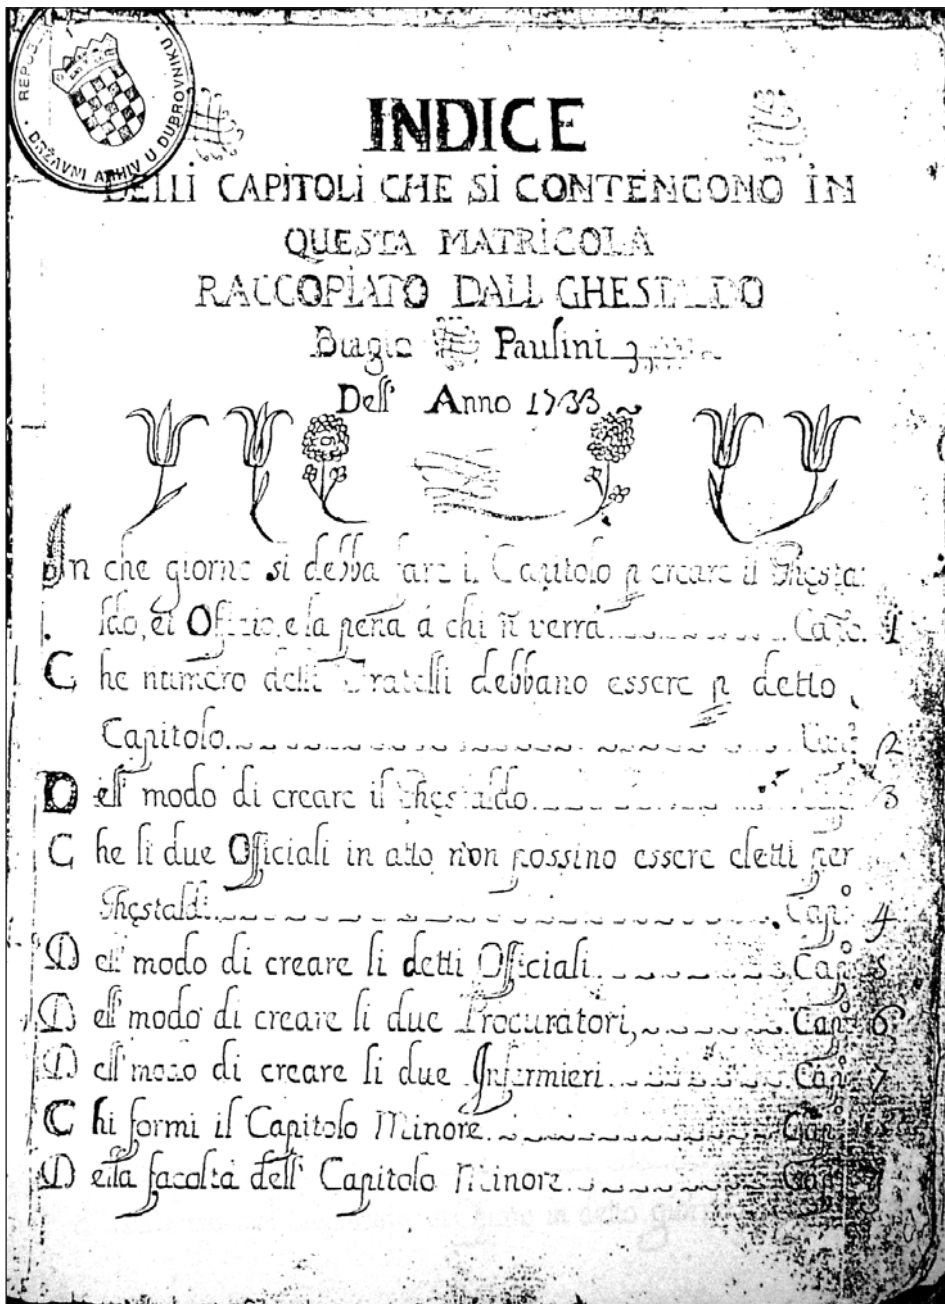 REPUB
DRŽAVNI ARHIV U DUBROVNIKU
INDICE
DELLI CAPITOLI CHE SI CONTENGONO IN
QUESTA MATRICOLA
RACCOPIATO DALL GHESTALDO
Biagio Paulini
Dell' Anno 1733
In che giorno si debba fare il Capitolo p creare il Ghesta:
ldo, ei Offizio, e la pena á chi ñ verrá Capo. 1
Che numero delli Fratelli debbano essere p detto
Capitolo Capo 2
Dell' modo di creare il Ghestaldo 3
Che li due Officiali in atto non possino essere eletti per
Ghestaldi Capo: 4
Dell' modo di creare li detti Officiali Capo: 5
Dell' modo di creare li due Procuratori, Capo: 6
Dell' modo di creare li due Infermieri Capo: 7
Chi formi il Capitolo Minore Capo:
Della facoltá dell' Capitolo Minore Capo: